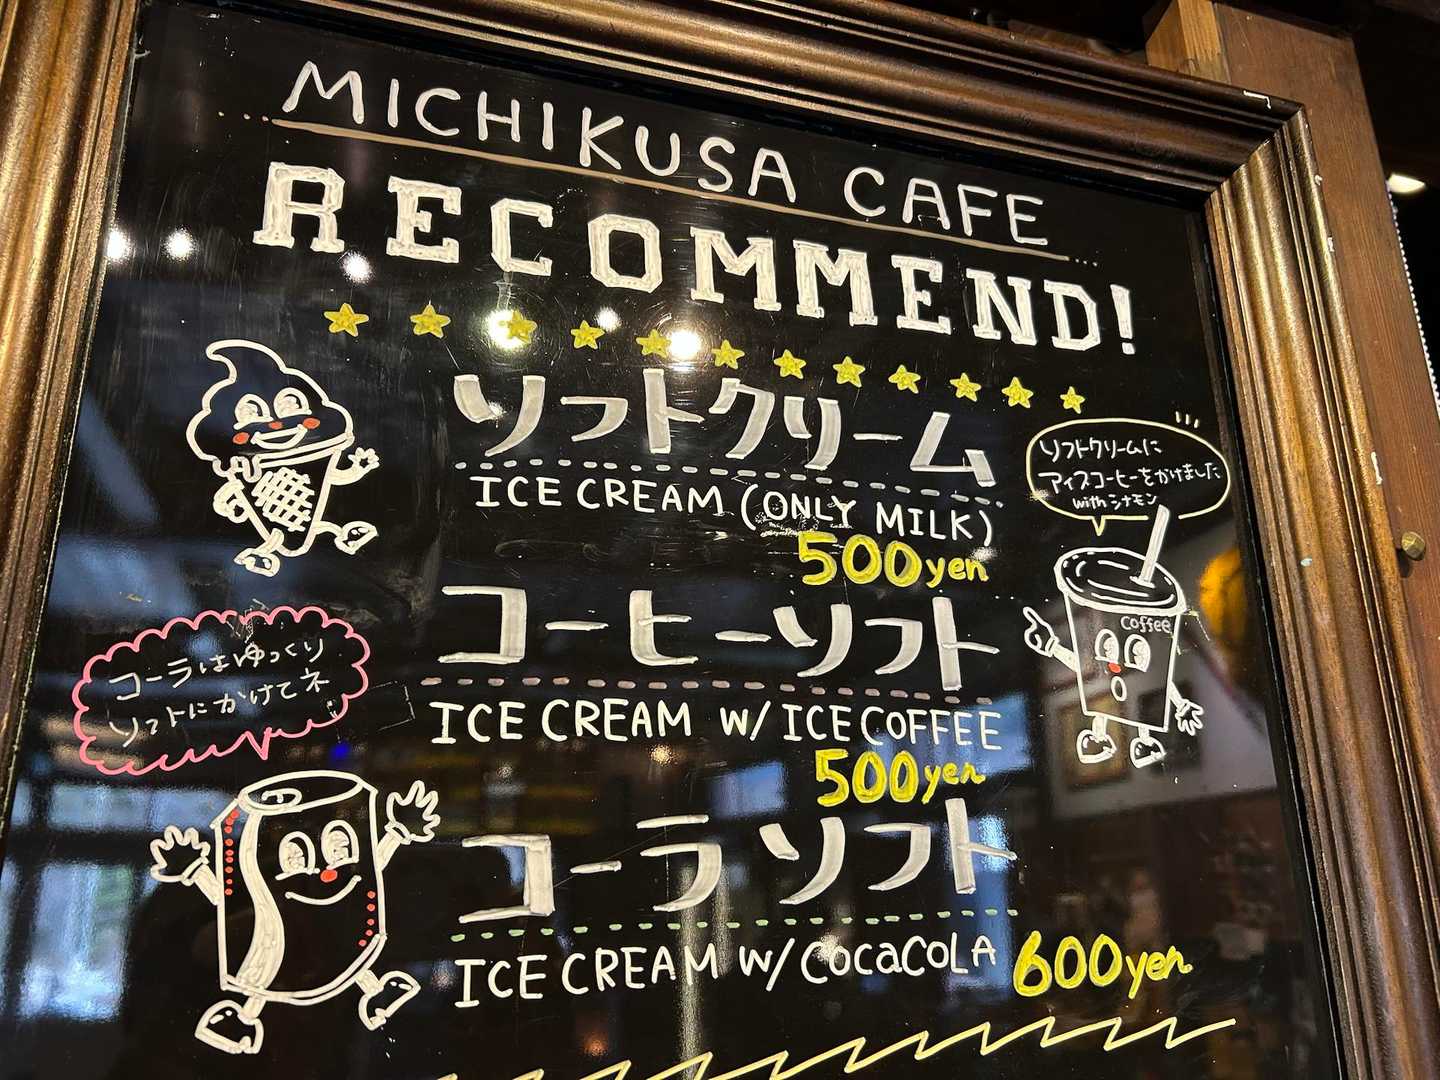 MICHIKUSA CAFE
RECOMMEND!
ソフトクリーム
ICE CREAM (ONLY MILK)
500yen
ソフトクリームに
アイスコーヒーをかけました
with シナモン
coffee
コーヒーソフト
ICE CREAM W/ ICE COFFEE
500yen
コーラはゆっくり
ソフトにかけてネ
コーラソフト
ICE CREAM W/ COCACOLA 600yen